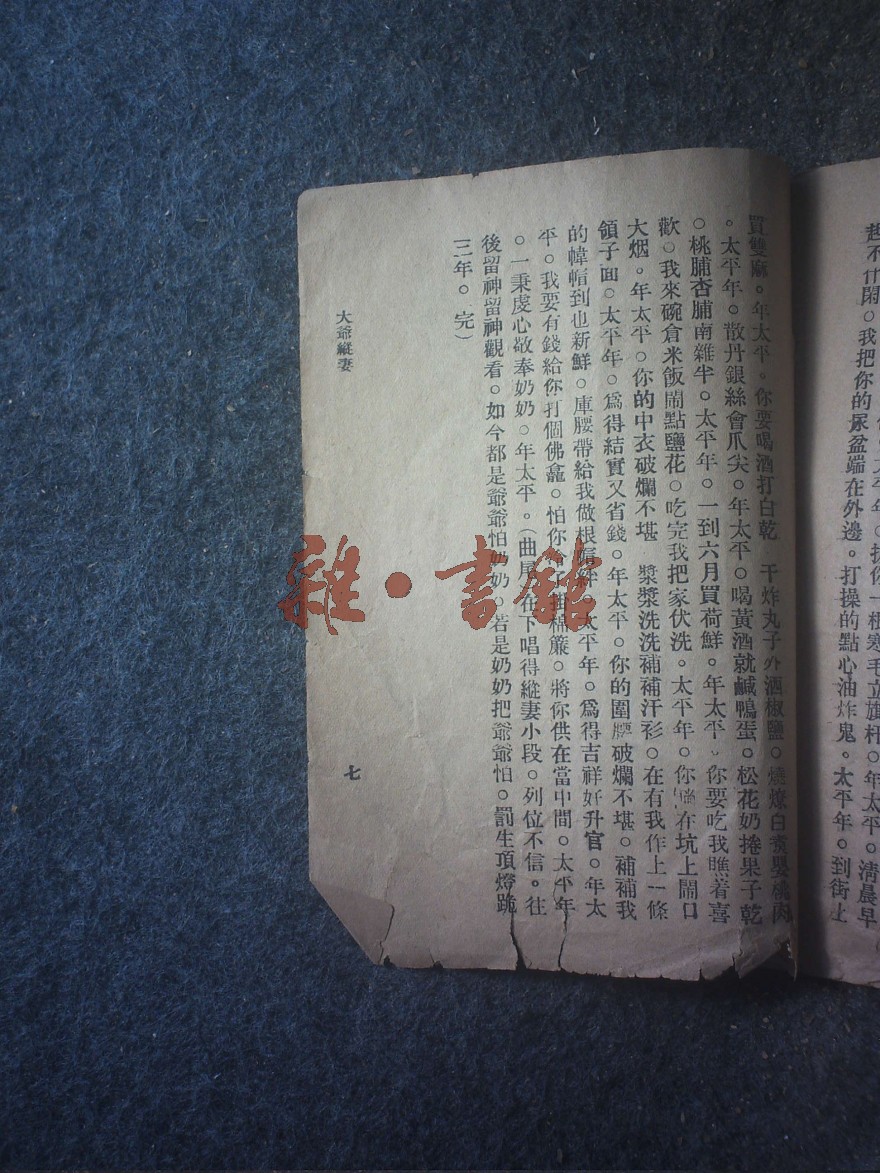 起不什閑。我把你的尿盆端在外邊。打操的點心油炸鬼。太平年。到街上
太平年。拔你一根寒毛立旗杆。年太平。清晨早
買雙麻。年太平。你要喝酒打白乾　干炸丸子外洒椒鹽。燒燎白煮嬰桃肉
。太平年。散丹銀絲會爪尖。年太平。喝黃酒就鹹鴨蛋。松花奶捲果子乾
。桃脯杏脯南雜半。太平年。一到六月買荷鮮。年太平。你要吃我瞧着喜
歡。我來碗倉米飯鬧點鹽花。吃完我把家伙洗。太平年。你在坑上鬧口
大烟。年太平。你的中衣破爛不堪　漿漿洗洗補補汗衫。在有我作上一條
領子面。太平年。爲得結實又省錢。年太平。你的圍腰破爛不堪。補補我
的幃帽到也新鮮。庫腰帶給我做根。太平年。爲得吉祥好升官。年太
平。我要有錢給你打個佛龕。怕你冷了掛棉簾。將你供在當中間。太平年
。一秉虔心敬奉奶奶。年太平。（曲尾）在下唱得縱妻小段。列位不信。往
後留神留神觀看。如今都是爺爺怕奶奶。若是奶奶把爺爺怕。罰生頂燈跪
三年。完）
大爺縱妻
七
雜·書館